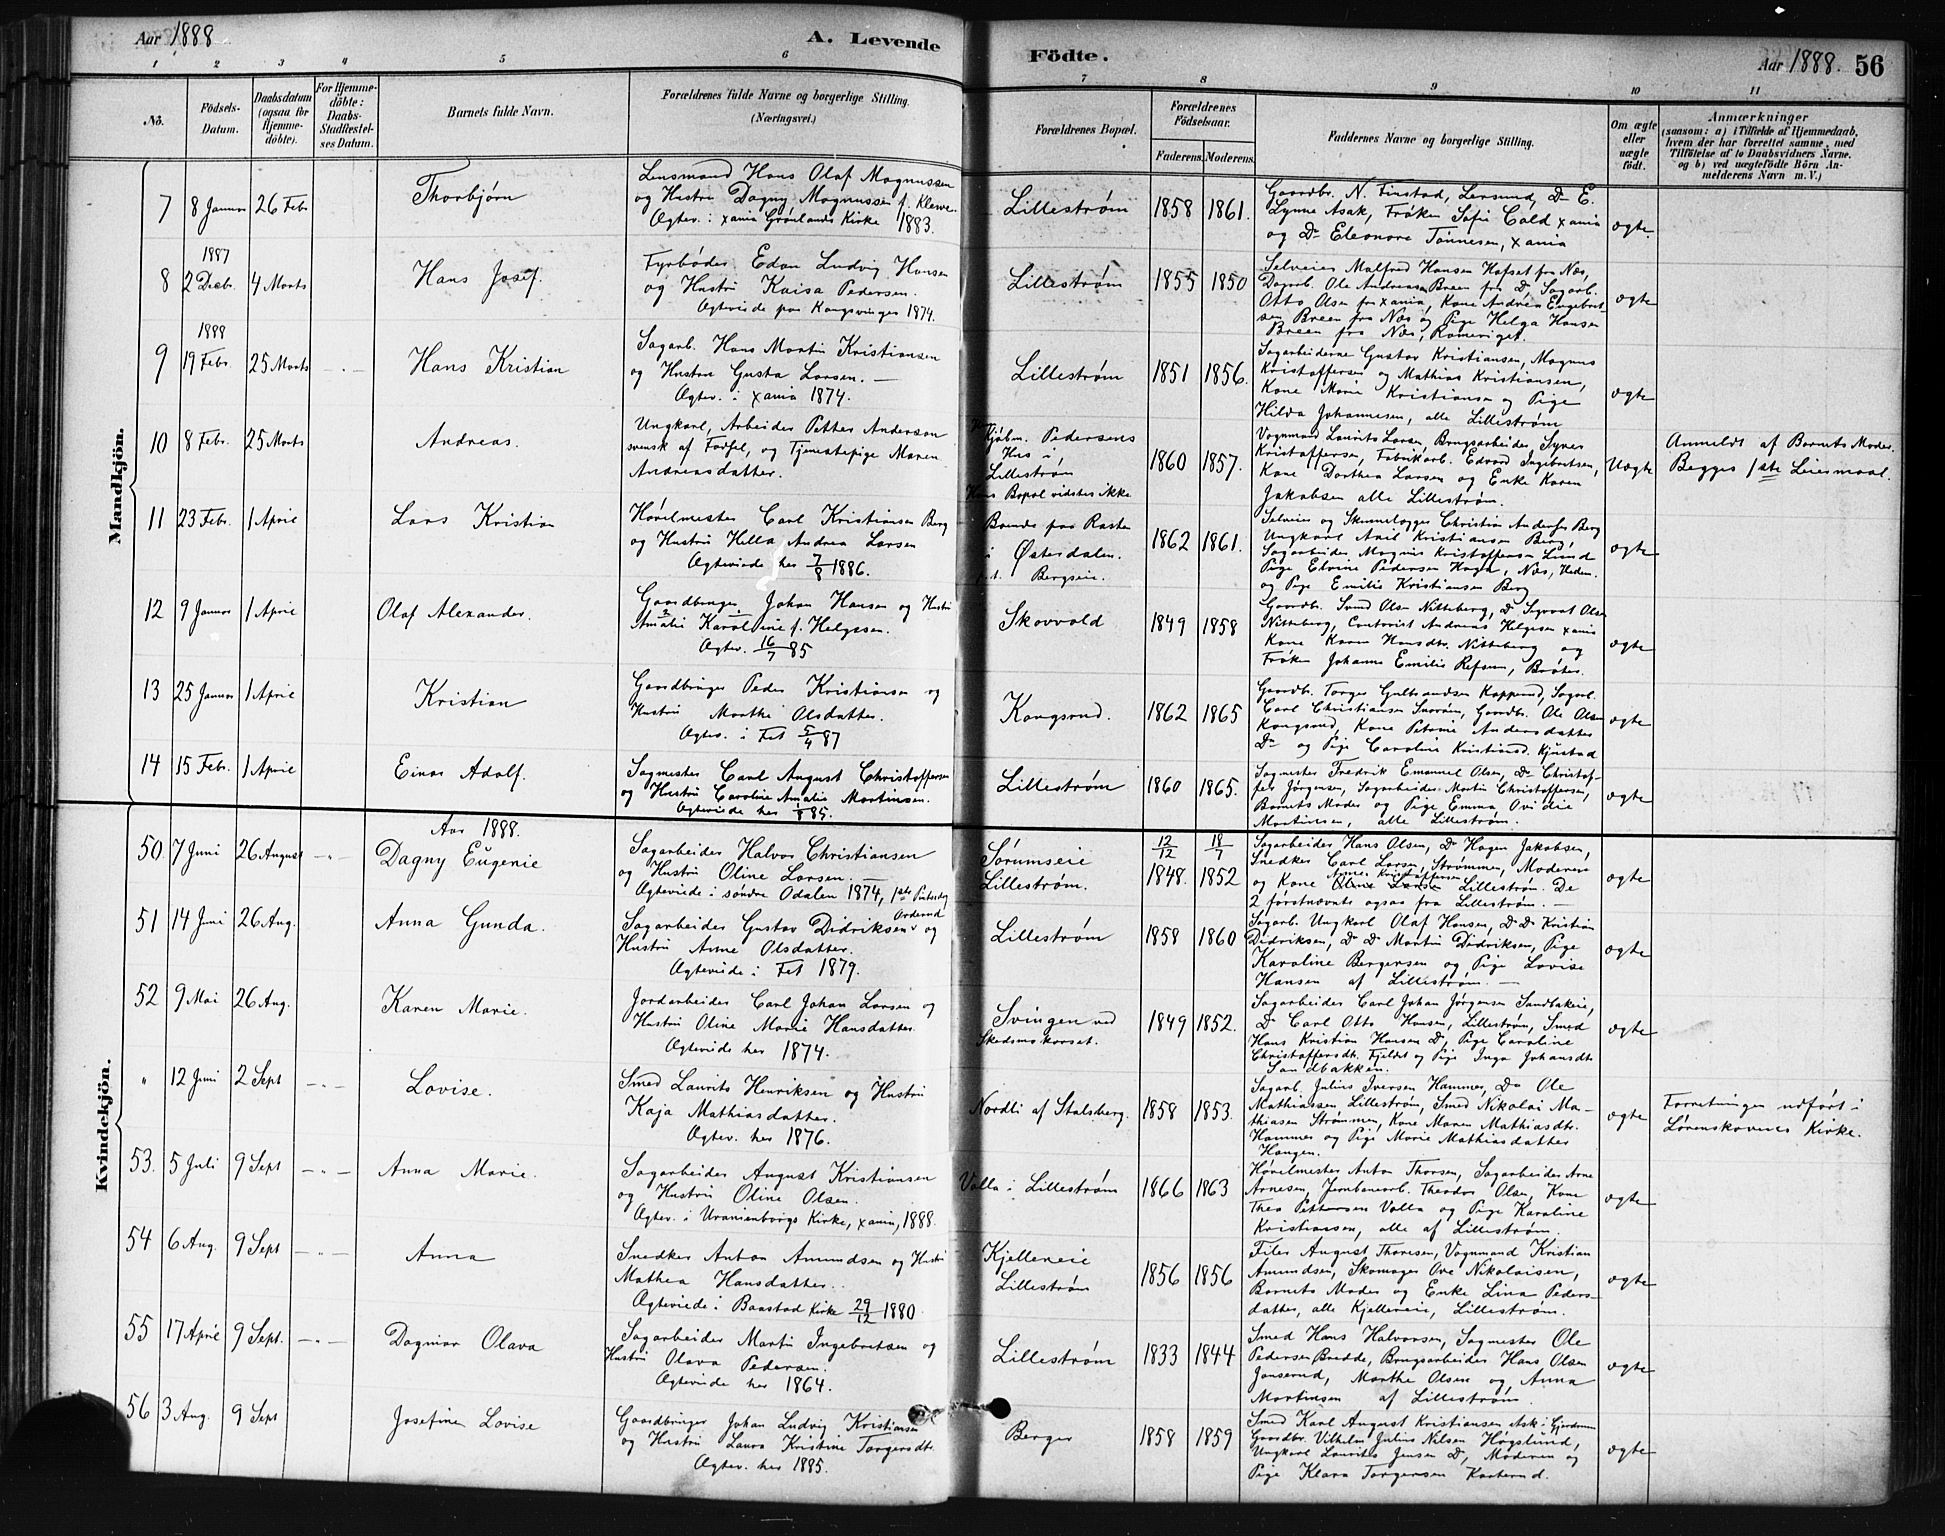 Aar 1888
A. Levende
Födte.
Aar 1888. 56
1 2 3 4 5 6 7 8 9 10 11
No.
Födsels-Datum.
Daabsdatum (ogsaa for Hjemme-döbte).
For Hjemme-döbte: Daabs-Stadfæstel-ses Datum.
Barnets fulde Navn.
Forældrenes fulde Navne og borgerlige Stilling. (Næringsvei.)
Forældrenes Bopæl.
Forældrenes Födselsaar.
Faderens. Moderens.
Faddernes Navne og borgerlige Stilling.
Om ægte eller uægte födt.
Anmærkninger
(saasom: a) i Tilfælde af Hjemmedaab, hvem der har forrettet samme, med Tilföielse af to Daabsvidners Navne. og b) ved uægtefödte Börn An-melderens Navn m. V.)
Mandkjön.
7 8 Januar 26 Febr Thorbjørn
Lensmand Hans Olaf Magnussen
og Hustru Dagny Magnussen f. Klewe
Ægtev. i Xania Grønlands Kirke 1883.
Lillestrøm 1858 1861.
Gaardbr. N. Finstad, Lersund, Do E.
Lynne Asak, Frøken Sofie Cold Xania
og Do Eleonore Tønnesen, Xania
ægte.
1887
8 2 Decbr. 4 Marts Hans Josef.
Fyrbøder Edon Ludvig Hansen
og Hustru Kaisa Pedersen.
Ægteviede paa Kongsvinger 1874.
Lillestrøm 1855 1850
Selveier Malfred Hansen Hofset fra Næs,
Dagarb. Ole Andreasen Breen fra Do Sagarb.
Otto Olsen fra Xania, Kone Andrea Engebret-
sen Breen fra Næs og Pige Helga Hansen
Breen fra Næs, Romeriget.
ægte
1888
9 19 Febr. 25 Marts Hans Kristian
Sagarb. Hans Martin Kristiansen
og Hustru Gusta Larsen.
Ægtev. i Xania 1874.
Lillestrøm 1851 1856.
Sagarbeiderne Gustav Kristiansen, Magnus
Kristoffersen og Mathias Kristiansen,
Kone Marie Kristiansen og Pige
Hilda Johannesen, alle Lillestrøm
ægte
10 8 Febr. 25 Marts Andreas.
Ungkarl, Arbeider Petter Anderson
svensk af Fødsel, og Tjenestepige Maren
Andreasdatter.
Kjøbm. Pedersens
Hus i
Lillestrøm
Hans Bopæl vidstes ikke
1860 1857.
Vognmand Laurits Larsen, Brugsarbeider Syver
Kristoffersen, Fabrikarb. Edvard Ingebretsen,
Kone Dorthea Larsen og Enke Karen
Jakobsen alle Lillestrøm.
Uægte
Anmeldt af Barnets Moder.
Begges 1ste Leiermaal.
11 23 Febr. 1 April Lars Kristian
Høvelmester Carl Kristiansen Berg
og Hustru Hella Andrea Larsen
Ægteviede her 7/8 1886.
Bænde paa Rasten
i Østerdalen.
Bergseie.
1862 1861.
Selveier og Skinnelægger Christian Andersen Berg
Ungkarl Axel Kristiansen Berg,
Sagarbeider Magnus Kristoffersen Lund
Pige Elvine Pedersen Haga, Næs, Hedem.
og Pige Emilie Kristiansen Berg
ægte
12 9 Januar 1 April Olaf Alexander.
Gaardbruger Johan Hansen og Hustru
Amalie Karoline f. Helgesen.
Ægtev. 16/7 85
Skovvold 1849 1858
Gaardbr. Svend Olsen Nitteberg, Do Sigvart Olsen
Nitteberg, Contorist Andreas Helgesen Xania
Kone Karen Hansdtr. Nitteberg og
Frøken Johanne Emilie Refsum, Bråten.
ægte
13 25 Januar 1 April Kristian
Gaardbruger Peder Kristiansen og
Hustru Marthe Olsdatter.
Ægtev. i Fet 5/4 87
Kongsrud. 1862 1865
Gaardbr. Torger Gulbrandsen Kopperud, Sagarb.
Carl Christiansen Snarøen, Gaardbr. Ole Olsen
Kongsrud, Kone Petrine Andersdatter
Do og Pige Caroline Kristiansd. Kjustad
ægte
14 15 Febr. 1 April Einar Adolf.
Sagmester Carl August Christoffersen
og Hustru Caroline Amalie Martinsen.
Ægteviede her 1/8 85.
Lillestrøm 1860 1865.
Sagmester Fredrik Emanuel Olsen, Do Christof-
fer Jørgensen, Sagarbeider Martin Christoffersen,
Barnets Moder og Pige Emma Ovidie
Martinsen, alle Lillestrøm.
ægte
Kvindekjön.
Aar 1888.
50 7 Juni 26 August Dagny Eugenie
Sagarbeider Halvor Christiansen
og Hustru Oline Larsen.
Ægteviede i søndre Odalen 1874, 1ste Pintsedag
Sørumseie
Lillestrøm.
12/12 1848. 18/7 1852
Sagarbeider Hans Olsen, Do Hagen Jakobsen,
Snedker Carl Larsen, Strømmen, Moderen
og Kone Anne Kristoffersen Lillestrøm. De
2 førstnævnte ogsaa fra Lillestrøm.
ægte
51 14 Juni 26 Aug. Anna Gunda.
Sagarbeider Gustav Didriksen Orderud og
Hustru Anne Olsdatter.
Ægteviede i Fet 1879.
Lillestrøm 1858 1860
Sagarb. Ungkarl Olaf Hansen, Do Do Kristian
Didriksen, Do Do Martin Didriksen, Pige
Karoline Bergersen og Pige Lovise
Hansen af Lillestrøm.
ægte
52 9 Mai 26 Aug. Karen Marie.
Jordarbeider Carl Johan Larsen og
Hustru Oline Marie Hansdatter.
Ægteviede her 1874.
Svingen ved
Skedsmokorset.
1849 1852.
Sagarbeider Carl Johan Jørgensen Sandbakeie,
Do Carl Otto Hansen, Lillestrøm, Smed
Hans Kristian Hansen Do, Pige Caroline
Christoffersdtr. Fjeldet og Pige Inga Johansdtr.
Sandbakken.
ægte
" 12 Juni 2 Sept Lovise.
Smed Laurits Henriksen og Hustru
Kaja Mathiasdatter.
Ægtev. her 1876.
Nordli af Stalsberg. 1858 1853.
Sagarb. Julius Iversen Hammer, Do Ole
Mathiassen Lillestrøm, Smed Nikolai Ma-
thiasen Strømmen, Kone Maren Mathiasdtr.
Hammer og Pige Marie Mathiasdatter
Haugen.
ægte
Forretningen udført i
Lørenskovens Kirke.
53. 5 Juli 9 Sept Anna Marie.
Sagarbeider August Kristiansen
og Hustru Oline Olsen.
Ægtev. i Uranienborgs Kirke, Xania, 1888.
Volla i Lillestrøm 1866 1863
Høvelmester Anton Thorsen, Sagarbeider Arne
Arnesen, Jernbanearb. Theodor Olsen, Kone
Thea Pettersen Volla og Pige Karoline
Kristiansen, alle af Lillestrøm
ægte
54 6 Aug. 9 Sept Anna
Snedker Anton Amundsen og Hustru
Mathea Hansdatter.
Ægteviede i Baastad Kirke 29/12 1880.
Kjellereie
Lillestrøm
1856 1856
Filer August Thoresen, Vognmand Kristian
Amundsen, Skomager Ove Nikolaisen,
Barnets Moder og Enke Lina Peders-
datter, alle Kjellereie, Lillestrøm.
ægte
55 17 April 9 Sept. Dagmar Olava
Sagarbeider Martin Ingebretsen og
Hustru Olava Pedersen.
Ægteviede her 1864.
Lillestrøm 1833 1844
Smed Hans Halvorsen, Sagmester Ole
Pedersen Bredde, Brugsarbeider Hans Olsen
Jonserud, Marthe Olsen og Anna
Martinsen af Lillestrøm.
ægte
56 3 Aug. 9 Sept Josefine Lovise
Gaardbruger Johan Ludvig Kristiansen
og Hustru Laura Kristine Torgersdtr.
Ægtev. her 1885.
Berger 1858 1859
Smed Karl August Kristiansen Ask i Gjerdrum
Gaardbr. Vilhelm Julius Nilsen Høgslund,
Ungkarl Laurits Jensen Do, Moderen og
Pige Klara Torgersen Karterud.
ægte